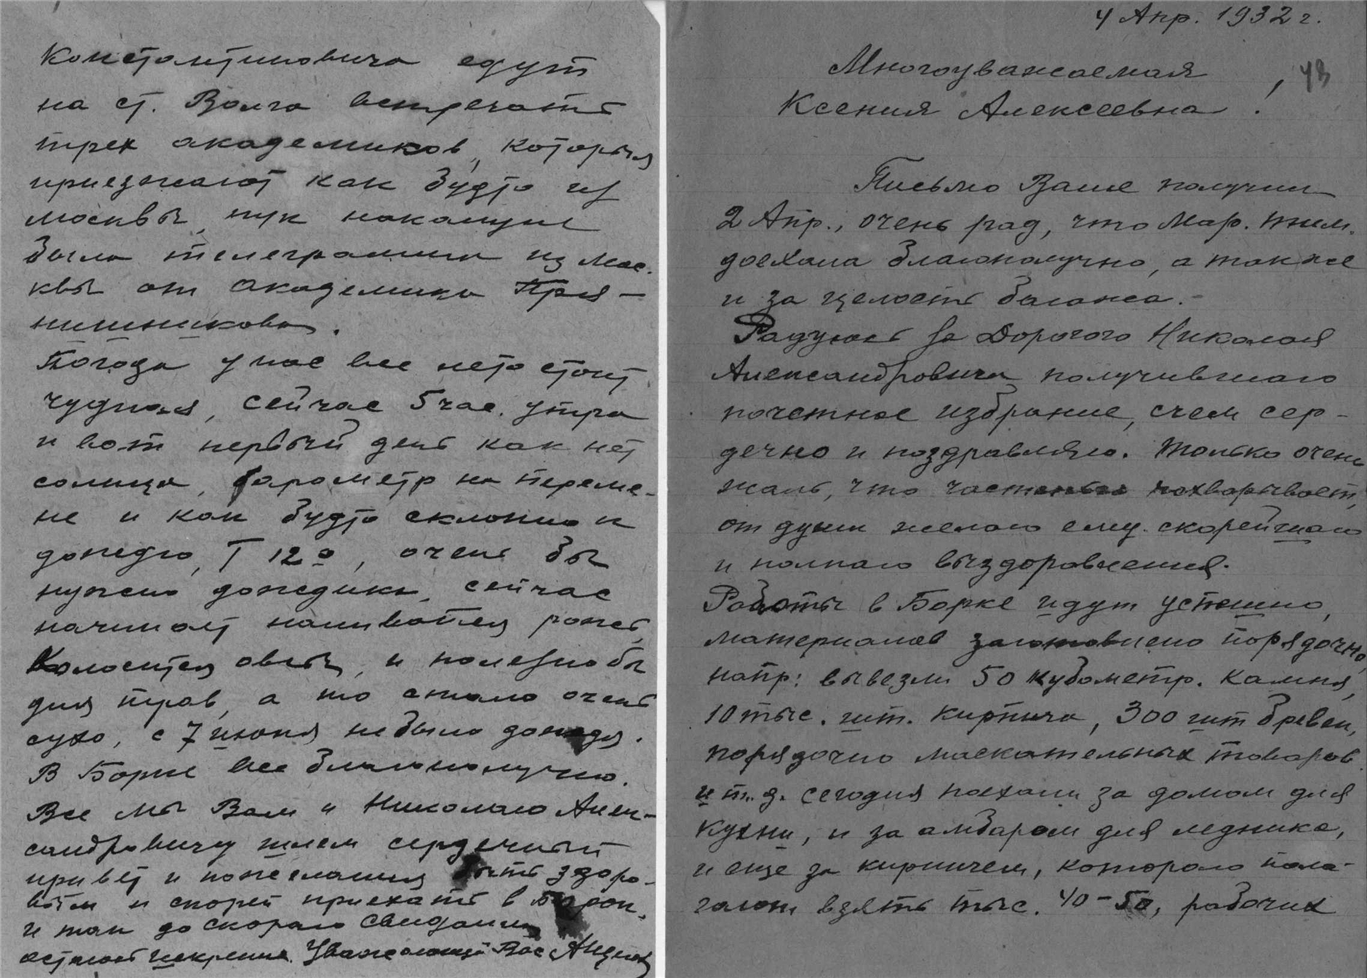 Константиновича едут
на ст. Волга встречать
трех академиков, которыя
приезжают как будто из
Москвы, т.к. накануне
была телеграмма из Мос-
квы от академика Пря-
нишникова.
Погода у нас все лето стоит
чудная, сейчас 5 час. утра
и вот первый день как нет
солнца, барометр на переме-
не и как будто склонно к
дождю, Т 12º, очень бы
нужно дождика, сейчас
начинает наливаться рожь,
колосится овес, и полезно бы
для трав, а то стало очень
сухо, с 7 июня не было дождя.
В Борке все благополучно.
Все мы Вам и Николаю Алек-
сандровичу шлем сердечный
привет и пожелания быть здоро-
вым и скорей приехать в Борок.
и так до скораго свидания
остаюсь искренне Уважающий Вас
4 Апр. 1932 г.
43
Многоуважаемая
Ксения Алексеевна!
Письмо Ваше получил
2 Апр., очень рад, что Мар. Тим.
доехала благополучно, а также
и за целость багажа.-
Радуюсь за Дорогого Николая
Александровича получившаго
почетное избрание, с чем сер-
дечно и поздравляю. Только очень
жаль, что частенько похварывает,
от души желаю ему скорейшаго
и полнаго выздоровления.
Работы в Борке идут успешно,
материалов заготовлено порядочно,
напр: вывезли 50 кубометр. камня,
10 тыс. шт. кирпича, 300 шт бревен,
порядочно москательных товаров
и т.д. сегодня поехали за домом для
кухни, и за амбаром для ледника,
и еще за кирпичем, которого пола-
гаем взять тыс. 40-50, рабочих